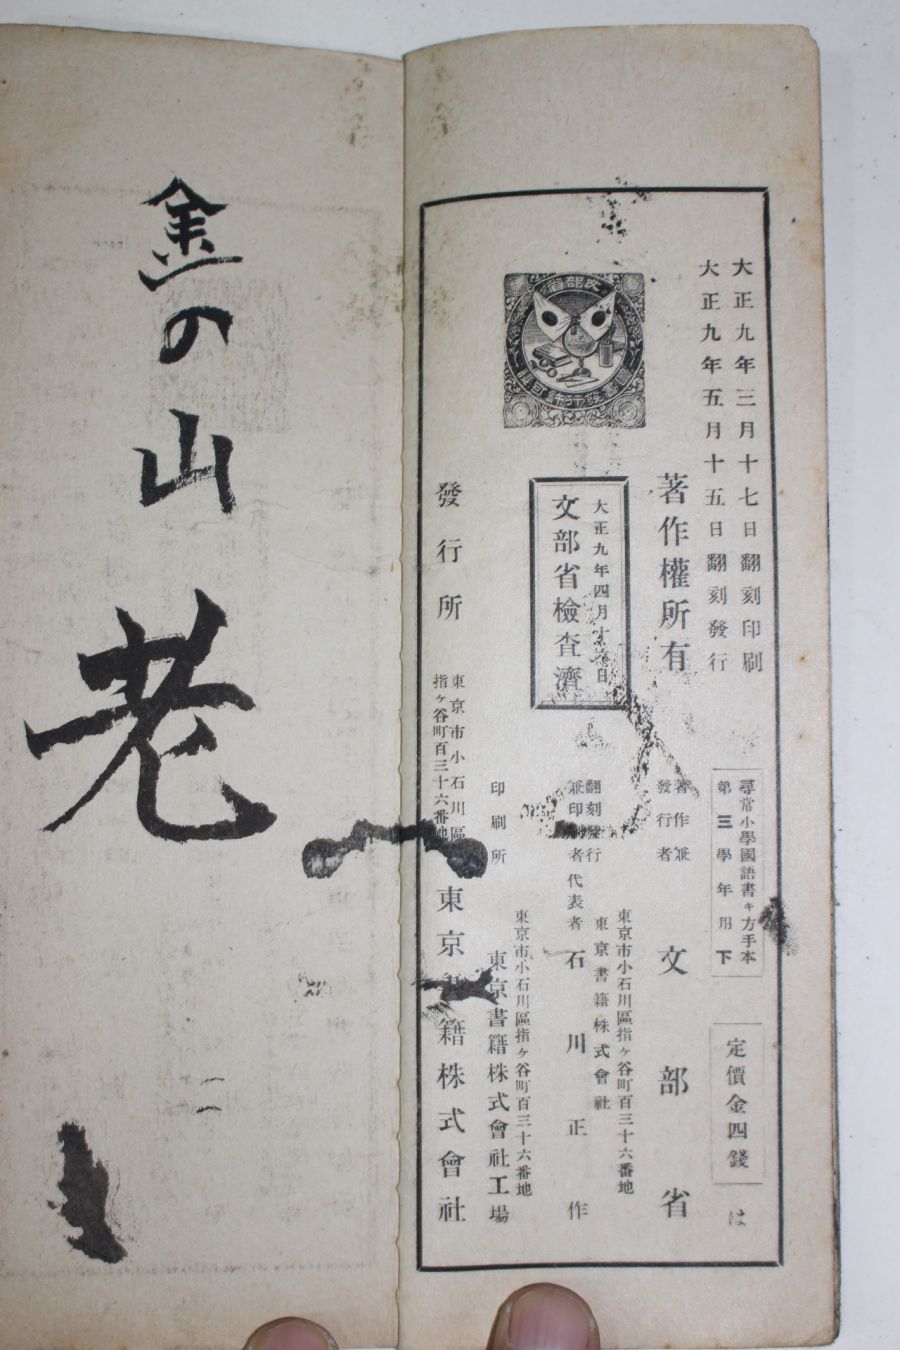 大正九年三月十七日翻刻印刷
大正九年五月十五日翻刻發行
尋常小學國語書キ方手本
第三學年用下
定價金四錢
は
著作權所有
著作兼
發行者
文部省
大正九年四月十 日
文部省檢査濟
翻刻發行
兼印 者
代表者
東京市小石川區指ヶ谷町百三十六番地
東京書籍株式會社
石川正作
印刷所
東京市小石川區指ヶ谷町百三十六番地
東京書籍株式會社工場
發行所
東京市小石川區
指ヶ谷町百三十六番地
東京 籍株式會社
金の山
老